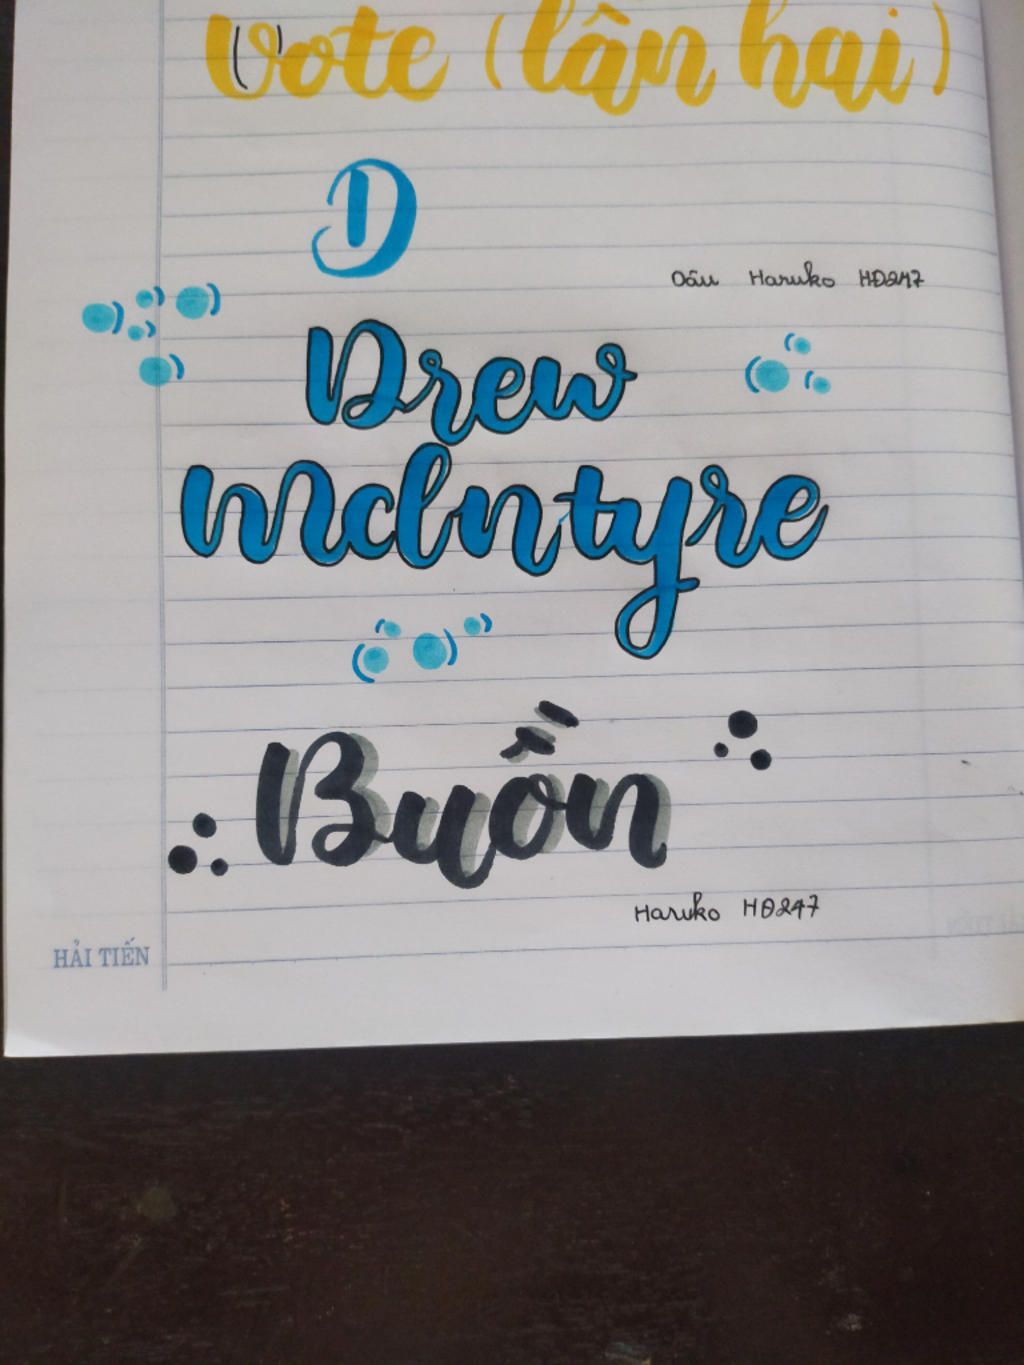 Vote (lần hai)
D
Dâu Haruko HĐ247
Drew
McIntyre
Buồn
Haruko HĐ247
HẢI TIẾN